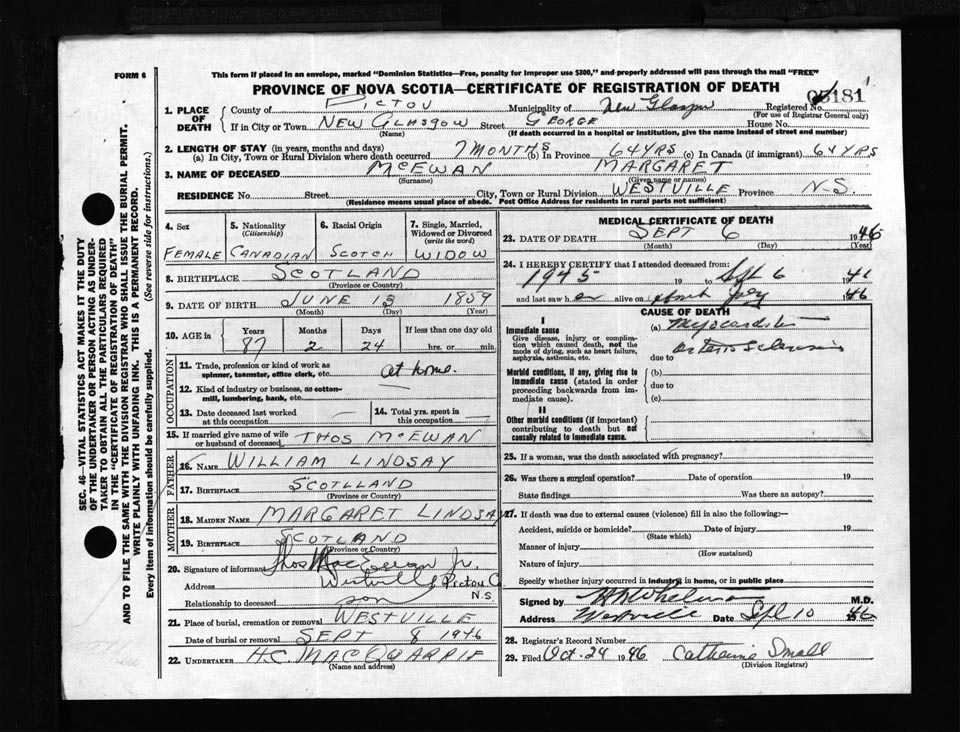 FORM 6
This form if placed in an envelope, marked "Dominion Statistics—Free, penalty for improper use $300," and properly addressed will pass through the mail "FREE"
PROVINCE OF NOVA SCOTIA—CERTIFICATE OF REGISTRATION OF DEATH
SEC. 46—VITAL STATISTICS ACT MAKES IT THE DUTY
OF THE UNDERTAKER OR PERSON ACTING AS UNDER-
TAKER TO OBTAIN ALL THE PARTICULARS REQUIRED
IN THE "CERTIFICATE OF REGISTRATION OF DEATH"
AND TO FILE THE SAME WITH THE DIVISION REGISTRAR WHO SHALL ISSUE THE BURIAL PERMIT.
WRITE PLAINLY WITH UNFADING INK. THIS IS A PERMANENT RECORD.
Every item of information should be carefully supplied. (See reverse side for instructions.)
1. PLACE OF DEATH County of PICTOU Municipality of New Glasgow Registered No. 181
(For use of Registrar General only)
If in City or Town NEW GLASGOW Street GEORGE House No.
(Name) (If death occurred in a hospital or institution, give the name instead of street and number)
2. LENGTH OF STAY (in years, months and days)
(a) In City, Town or Rural Division where death occurred 7 MONTHS (b) In Province 64 YRS (c) In Canada (if immigrant) 64 YRS
3. NAME OF DECEASED McEWAN MARGARET
(Surname) (Given name or names)
RESIDENCE No. Street City, Town or Rural Division WESTVILLE Province N.S.
(Residence means usual place of abode. Post Office Address for residents in rural parts not sufficient)
4. Sex 5. Nationality (Citizenship) 6. Racial Origin 7. Single, Married, Widowed or Divorced (write the word)
FEMALE CANADIAN SCOTCH WIDOW
8. BIRTHPLACE SCOTLAND
(Province or Country)
9. DATE OF BIRTH JUNE 13 1859
(Month) (Day) (Year)
10. AGE in Years Months Days If less than one day old
87 2 24 hrs. or min.
OCCUPATION
11. Trade, profession or kind of work as spinner, teamster, office clerk, etc. at home.
12. Kind of industry or business, as cotton-mill, lumbering, bank, etc. —
13. Date deceased last worked at this occupation — 14. Total yrs. spent in this occupation —
15. If married give name of wife or husband of deceased THOS McEWAN
FATHER
16. NAME WILLIAM LINDSAY
17. BIRTHPLACE SCOTLLAND
(Province or Country)
MOTHER
18. MAIDEN NAME MARGARET LINDSAY
19. BIRTHPLACE SCOTLAND
(Province or Country)
20. Signature of informant Thos MacEwan Jr.
Address Westville Pictou Co
N.S.
Relationship to deceased son
21. Place of burial, cremation or removal WESTVILLE
Date of burial or removal SEPT 8 1946
22. UNDERTAKER H.C. MACQUARRIE
(Name and address)
MEDICAL CERTIFICATE OF DEATH
23. DATE OF DEATH SEPT 6 1946
(Month) (Day) (Year)
24. I HEREBY CERTIFY that I attended deceased from:
1945 19 to Sept 6 1946
and last saw her alive on about July 1946
CAUSE OF DEATH
I
Immediate cause
Give disease, injury or complication which caused death, not the mode of dying, such as heart failure, asphyxia, asthenia, etc.
(a) Myocarditis
due to arterio sclerosis
Morbid conditions, if any, giving rise to immediate cause (stated in order proceeding backwards from immediate cause).
(b)
due to
(c)
II
Other morbid conditions (if important) contributing to death but not causally related to immediate cause.
25. If a woman, was the death associated with pregnancy?
26. Was there a surgical operation? Date of operation 19
State findings Was there an autopsy?
27. If death was due to external causes (violence) fill in also the following:—
Accident, suicide or homicide? Date of injury 19
(State which)
Manner of injury
(How sustained)
Nature of injury
Specify whether injury occurred in industry, in home, or in public place
Signed by M.D.
Address Westville Date Sept 10 1946
28. Registrar's Record Number
29. Filed Oct. 24 1946 Catherine Small
(Division Registrar)